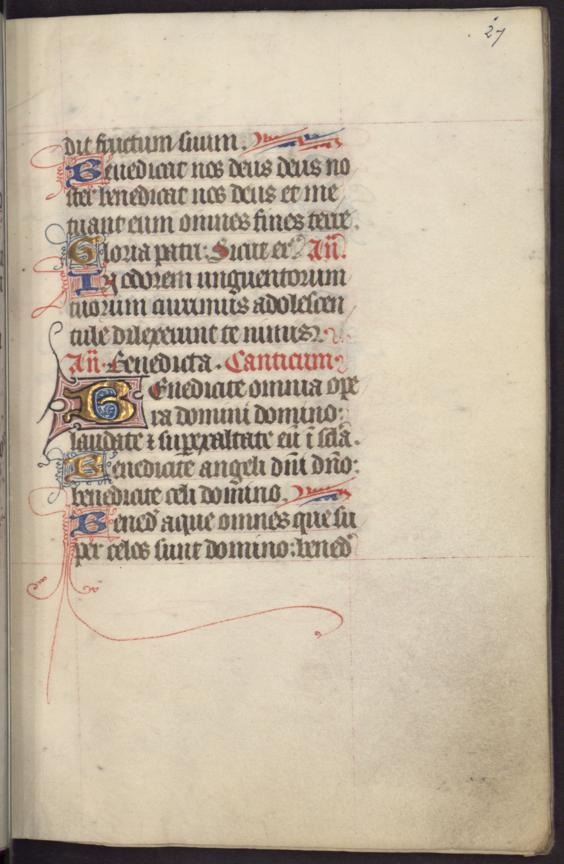 27
dit fructum suum.
Benedicat nos deus deus no
ster benedicat nos deus et me
tuant eum omnes fines terre.
Gloria patri: Sicut er̄ Añ.
In odorem unguentorum
tuorum currimus adolescen
tule dilexerunt te nimis
Añ. Benedicta. Canticum.
Benedicite omnia ope
ra domini domino:
laudate ⁊ superexaltate eū ī sclā.
Benedicite angeli dñi dño:
benedicite celi domino.
Bened̄ aque omnes que su
per celos sunt domino: bened̄